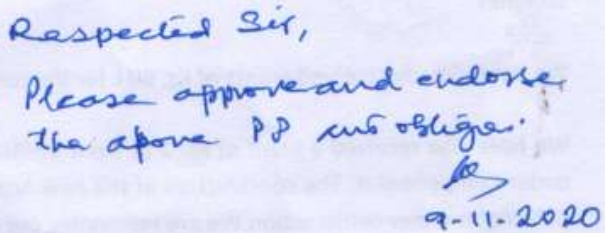 Respected Sir,
Please approve and endorse
the above PP and oblige.
9-11-2020